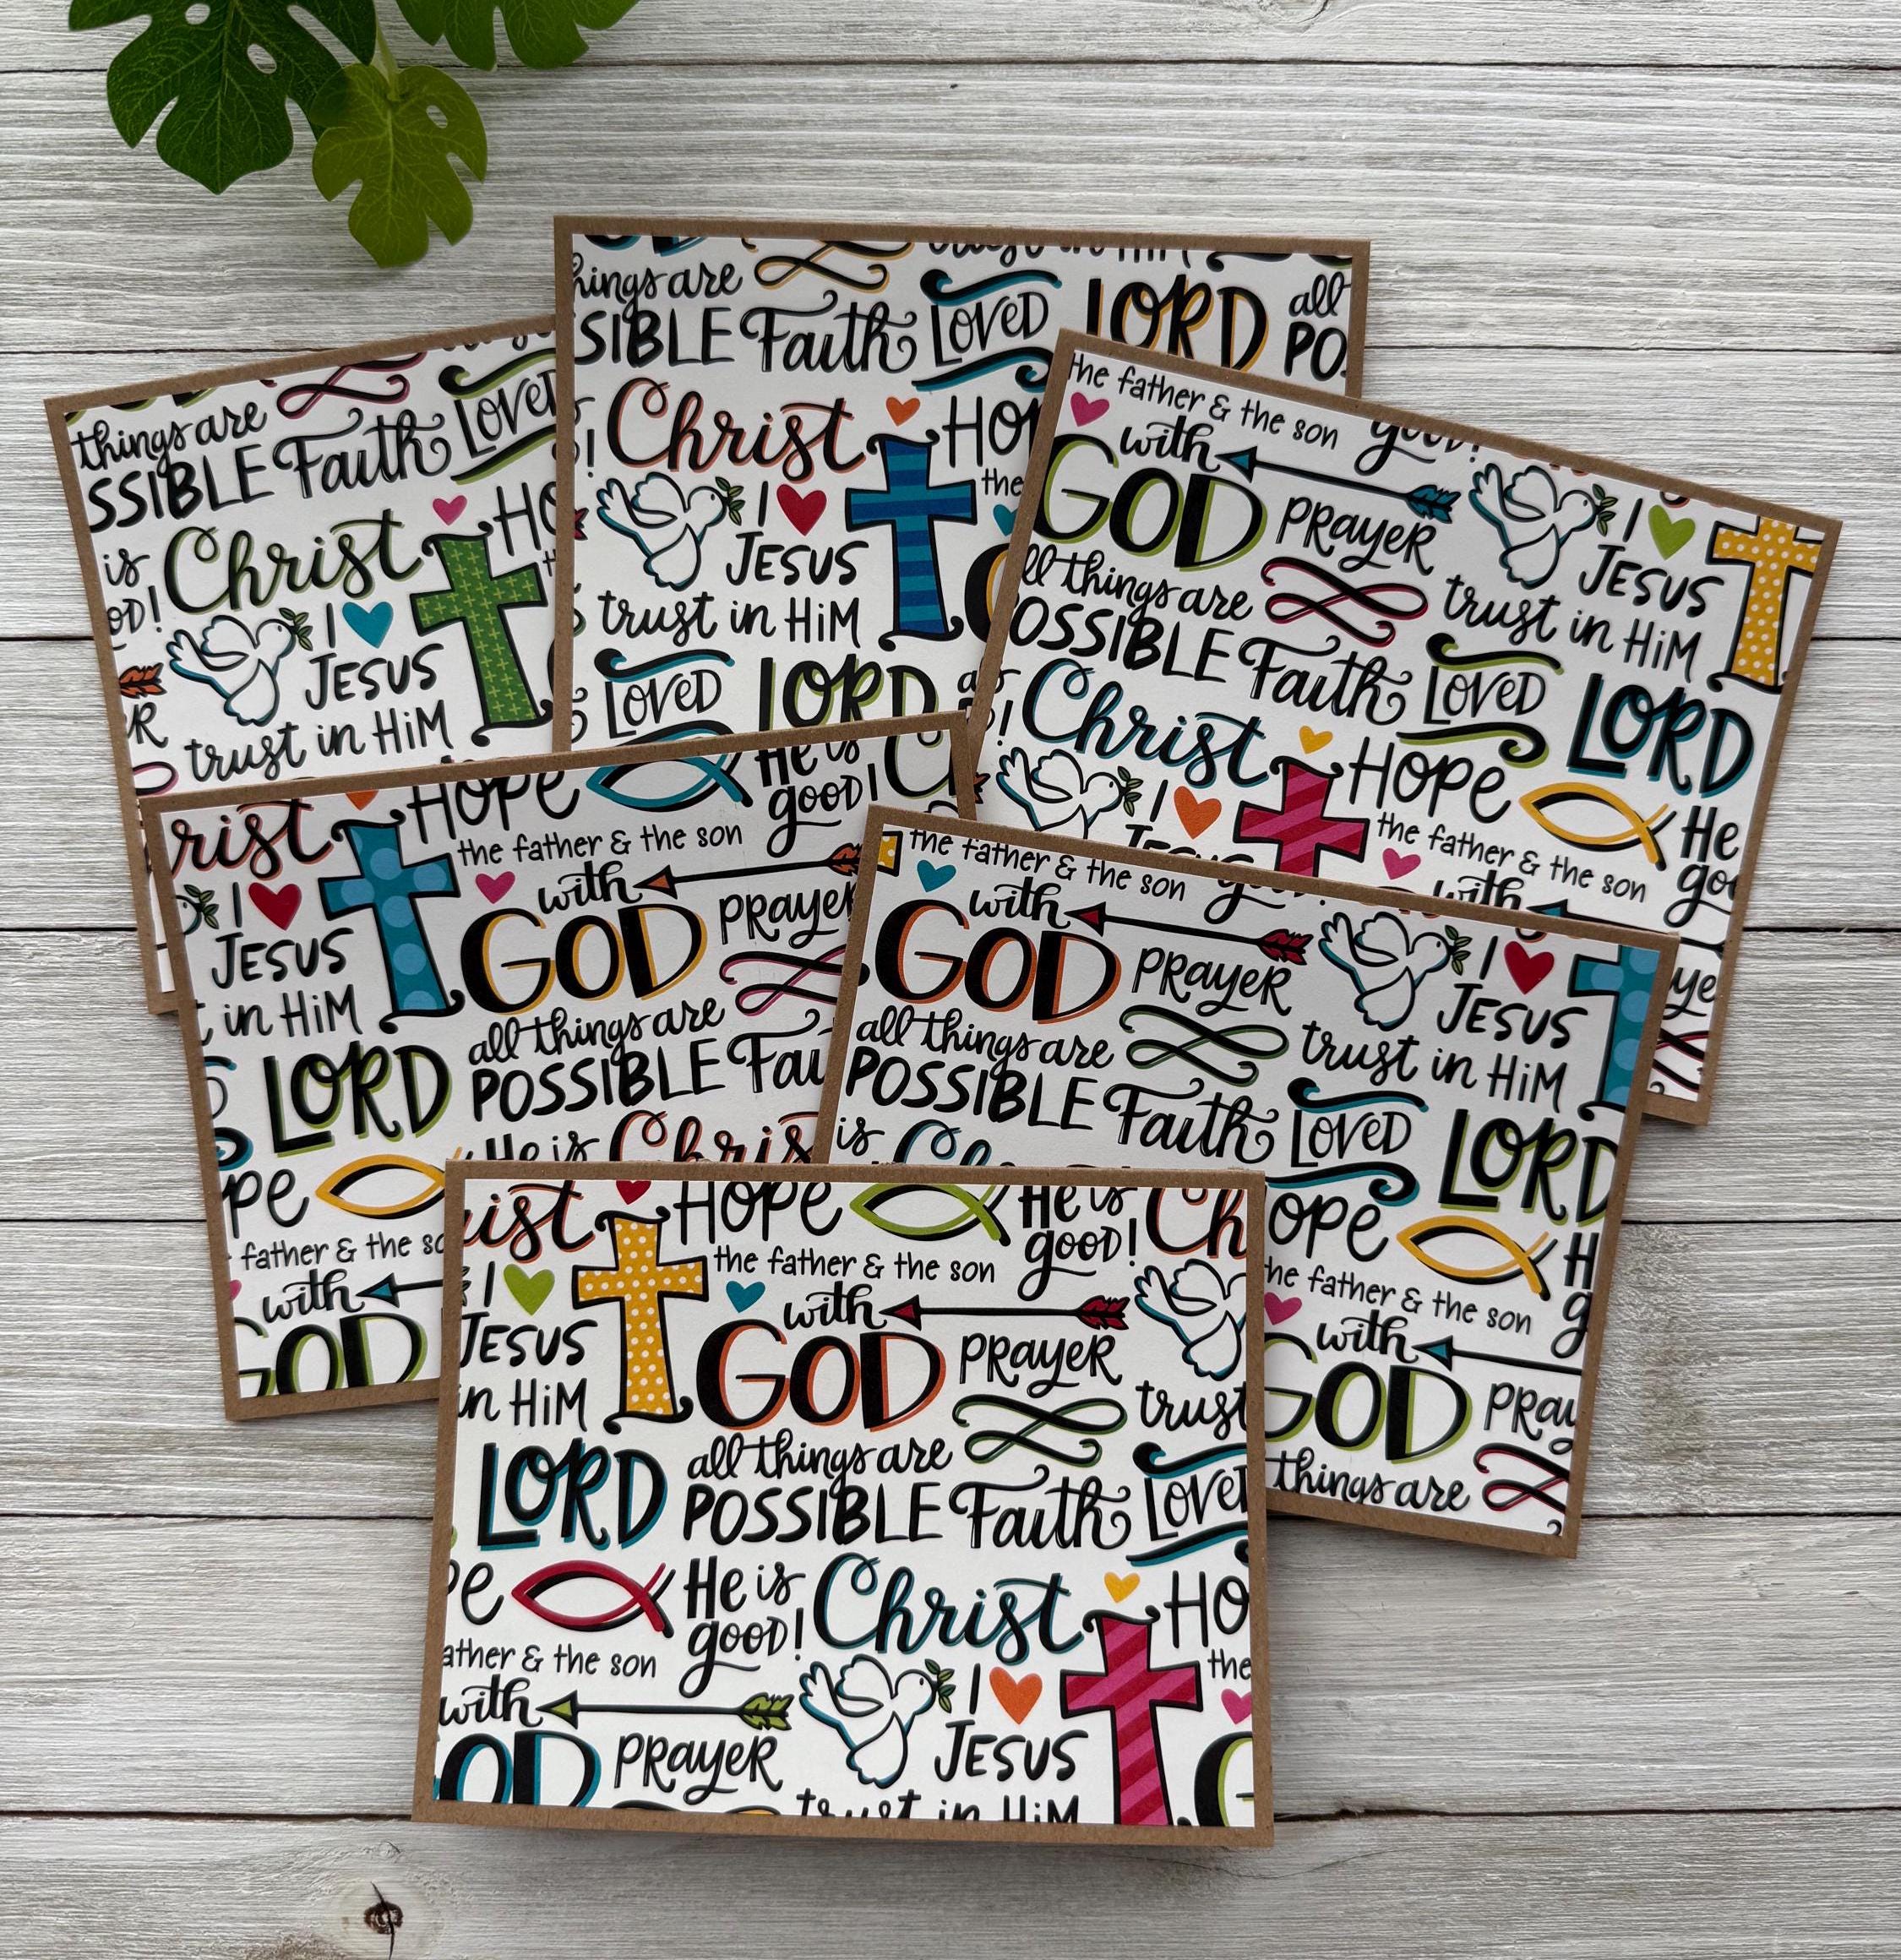 things are
SSIBLE Faith Loved
is Christ
I
JESUS
trust in HiM
trust in HiM
things are
SIBLE Faith Loved LORD all
PO
Christ HO
I the
JESUS
trust in HiM
Loved LORD
the father & the son good!
with
GOD PRayeR I
JESUS
all things are trust in HiM
POSSIBLE Faith Loved
LORD
Christ HOPE
I He
the father & the son
JESUS
with
HOPE He is
good!
rist the father & the son
I with
JESUS GOD PRayeR
in HiM all things are
LORD POSSIBLE Fai
He is Chris
pe
father & the so
with
GOD
the father & the son good!
with
GOD PRayeR I
JESUS
all things are trust in HiM
POSSIBLE Faith Loved
LORD
is
OPE
the father & the son
with
GOD PRay
things are
rist HOPE He is Ch
good!
I the father & the son
with
JESUS GOD PRayeR
in HiM trust
LORD all things are
POSSIBLE Faith Loved
pe He is Christ HO
good!
ather & the son the
with I
GOD PRayeR JESUS
trust in HiM